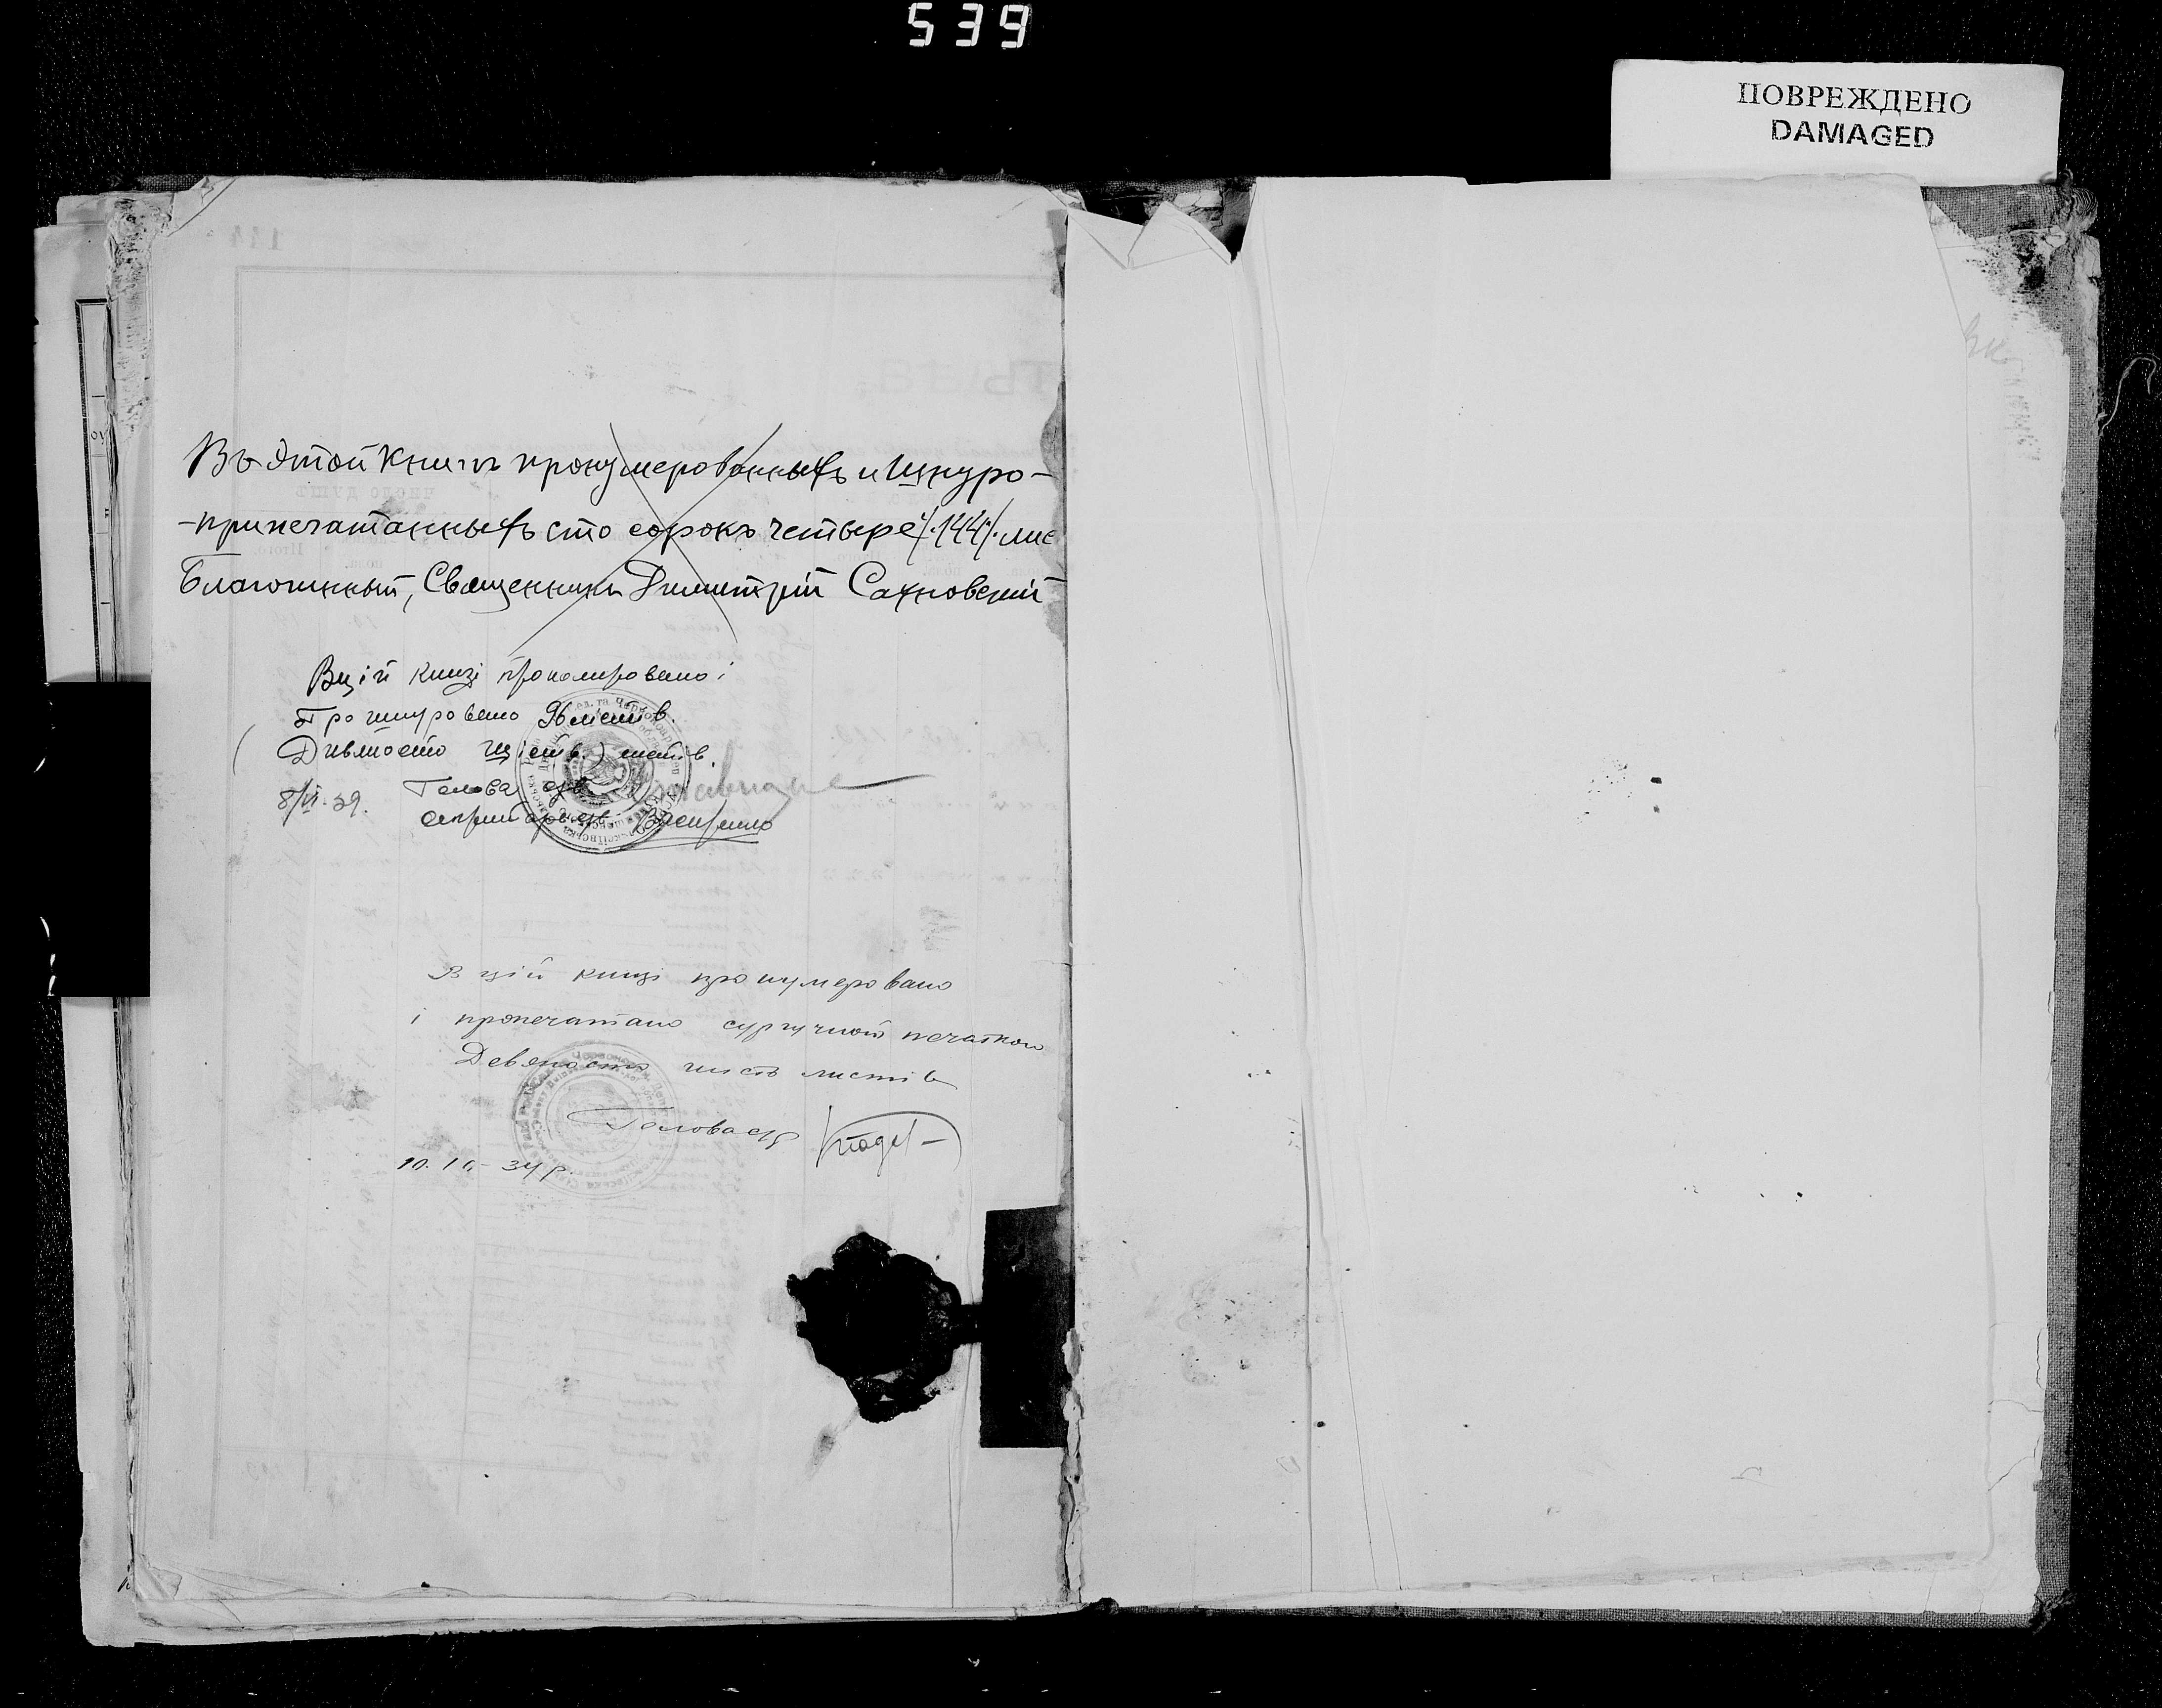 539
ПОВРЕЖДЕНО
DAMAGED
Въ этой книгѣ пронумерованныхъ и шнуро-
-припечатанныхъ сто сорокъ четыре /.144/. лис
Благочинный, Священникъ Димитрій Сахновскій
В цій книзі прономировано і
прошнуровано 96 листів.
(Дивяносто шість) листів.
8/VI-39. Голова с/р
секритарь с/р
В цій книзі пронумеровано
і пропечатано сургучною печаткою
Девяносто шість листів
Голова с/р
10.10.-34 р.